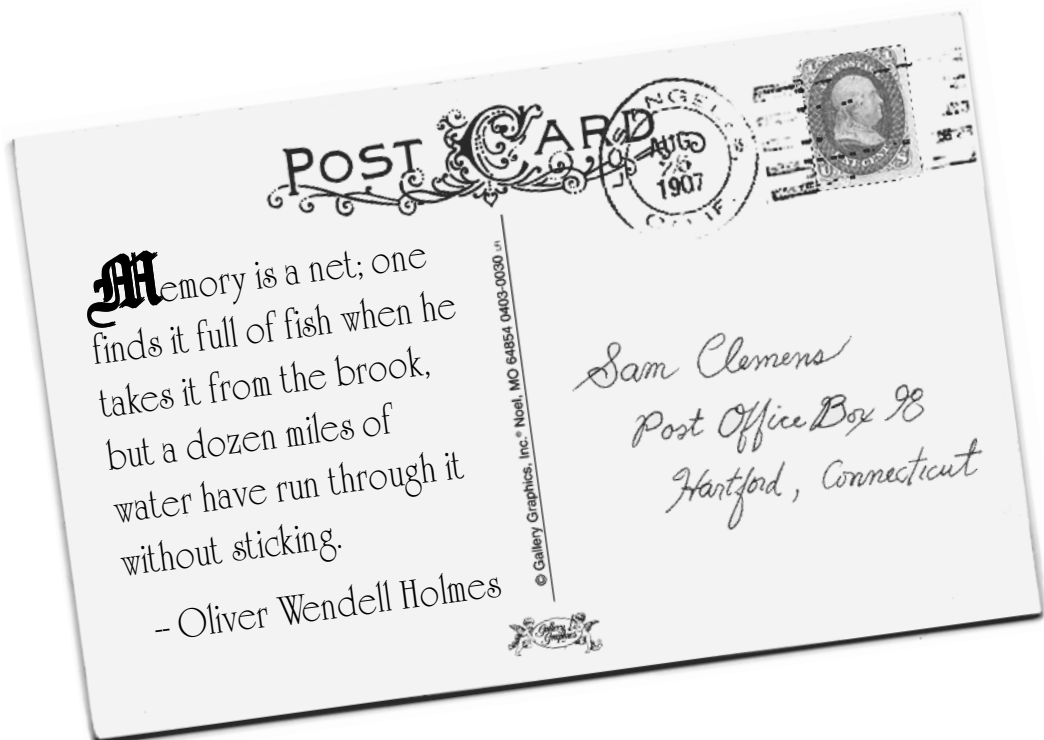 POST CARD
LOS ANGELES
AUG
26
1907
CALIF.
Memory is a net; one
finds it full of fish when he
takes it from the brook,
but a dozen miles of
water have run through it
without sticking.
-- Oliver Wendell Holmes
© Gallery Graphics, Inc.® Noel, MO 64854 0403-0030 LR
Sam Clemens
Post Office Box 98
Hartford, Connecticut
Gallery
Graphics